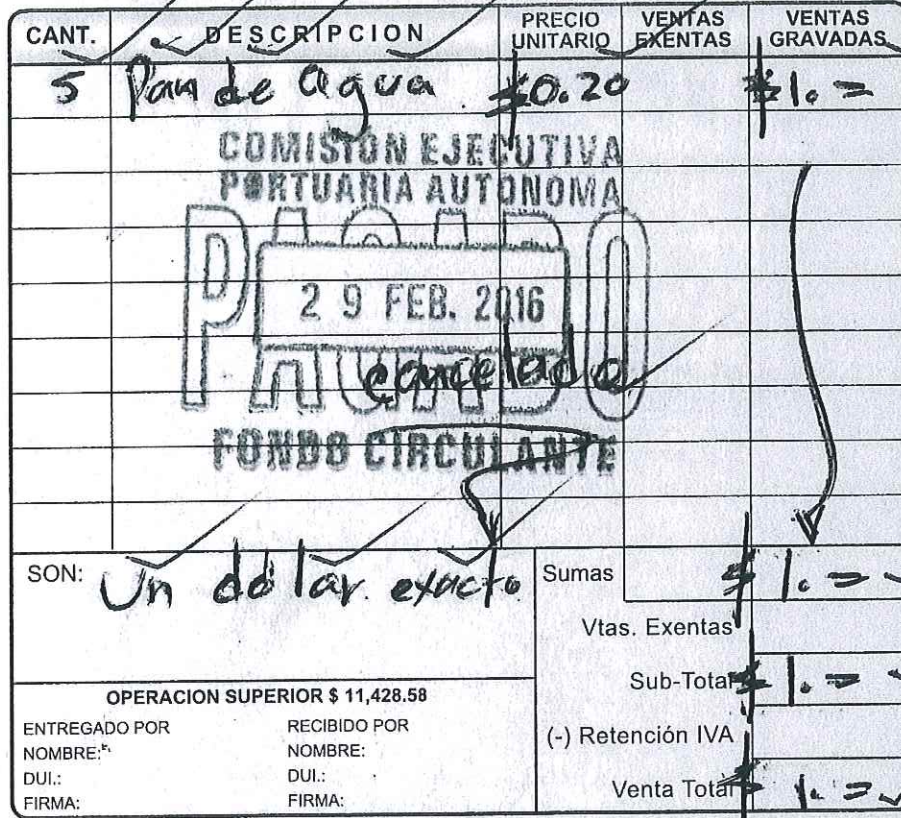 CANT. DESCRIPCION PRECIO UNITARIO VENTAS EXENTAS VENTAS GRAVADAS
5 Pan de agua $0.20 $1.=
COMISIÓN EJECUTIVA
PORTUARIA AUTONOMA
PAGADO
29 FEB. 2016
cancelado
FONDO CIRCULANTE
SON: Un dolar exacto
Sumas $1.=
Vtas. Exentas
Sub-Total $1.=
(-) Retención IVA
Venta Total $1.=
OPERACION SUPERIOR $ 11,428.58
ENTREGADO POR RECIBIDO POR
NOMBRE: NOMBRE:
DUI.: DUI.:
FIRMA: FIRMA: